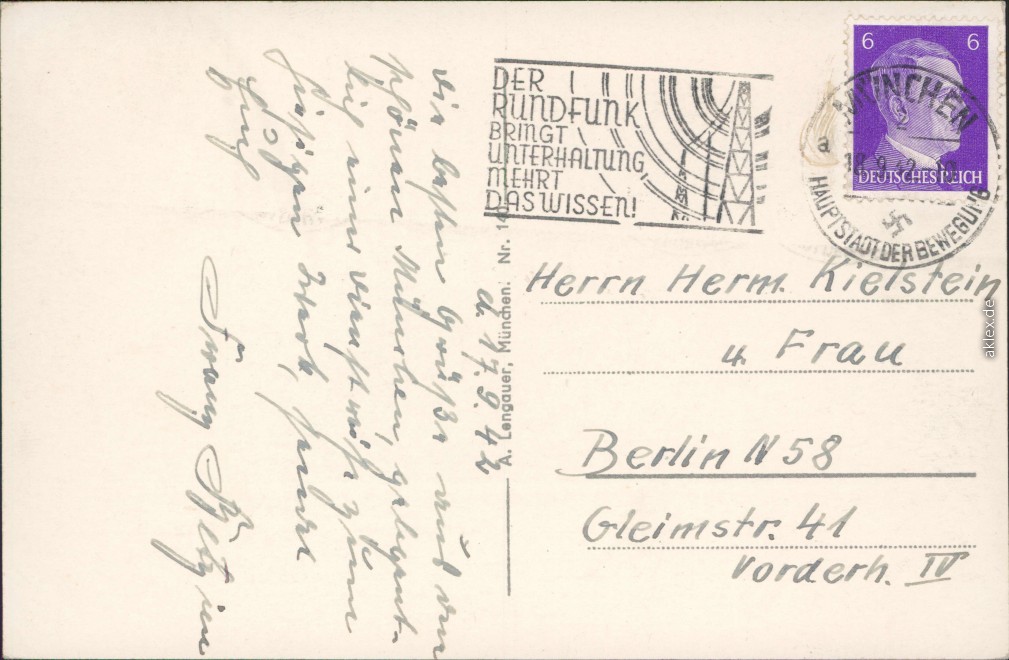 6 6
DEUTSCHES REICH
MÜNCHEN
a 18.9.42
HAUPTSTADT DER BEWEGUNG
DER
RUNDFUNK
BRINGT
UNTERHALTUNG
MEHRT
DAS WISSEN!
Herrn Herm. Kielstein
u. Frau
Berlin N 58
Gleimstr. 41
Vorderh. IV
A. Lengauer, München. Nr. 14
d. 17.9.42
Die besten Grüße aus dem
schönen München, gelegent-
lich einer Dienstreise zum
hiesigen Werk, sendet
Euch
Franz
aklex.de